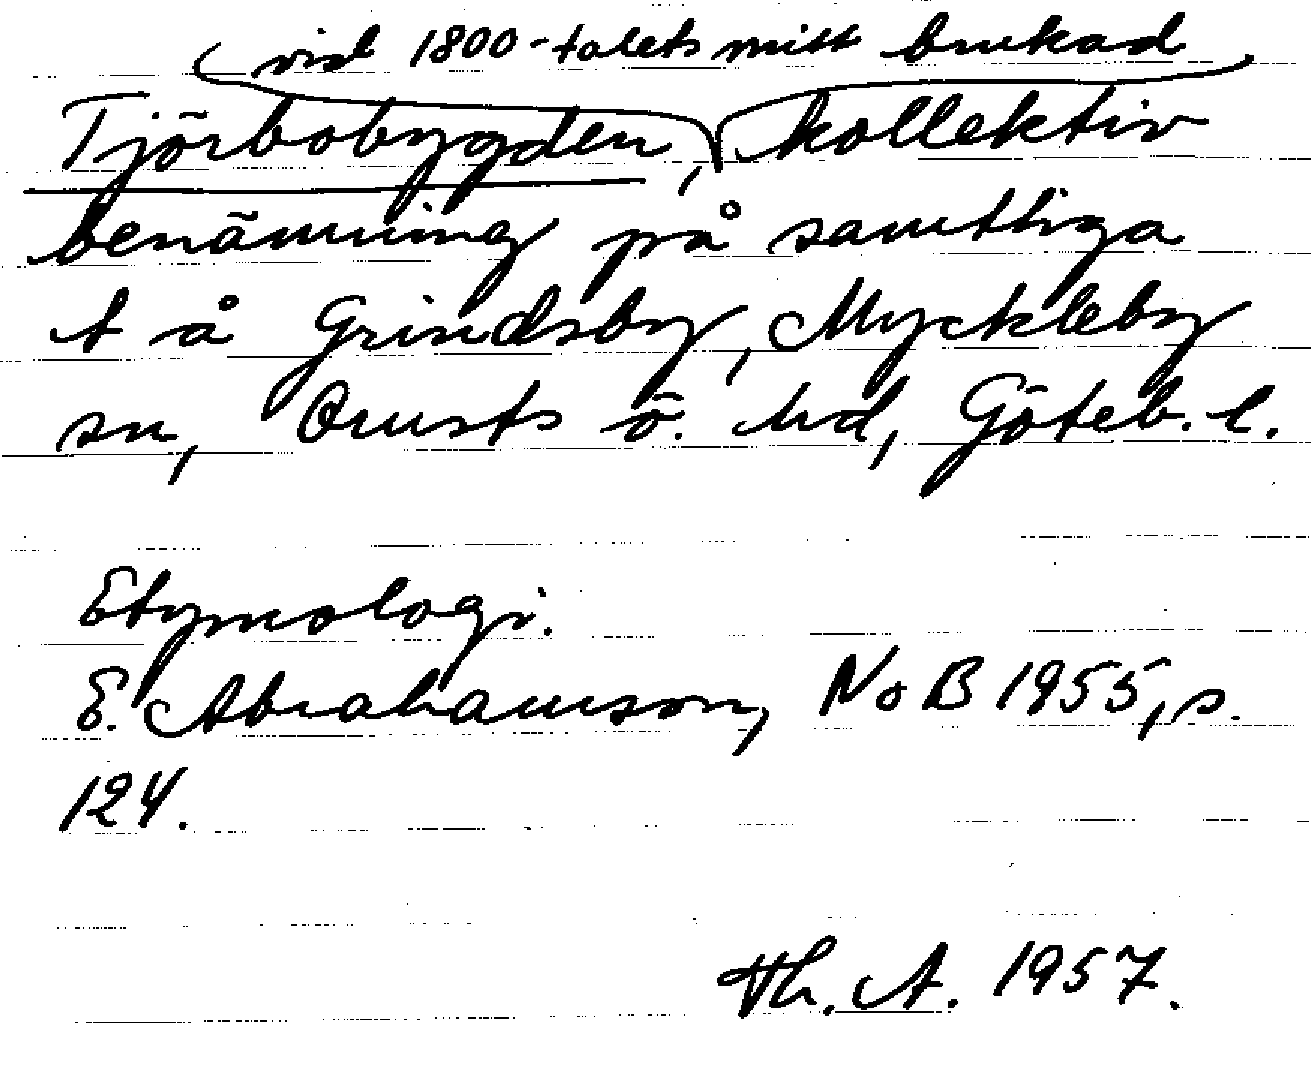 vid 1800-talets mitt brukad
Tjörbobygden, kollektiv
benämning på samtliga
t å Grindsby, Myckleby
sn, Orusts ö. hd, Göteb. l.
Etymologi.
E. Abrahamson, NoB 1955, s.
124.
Th. A. 1957.